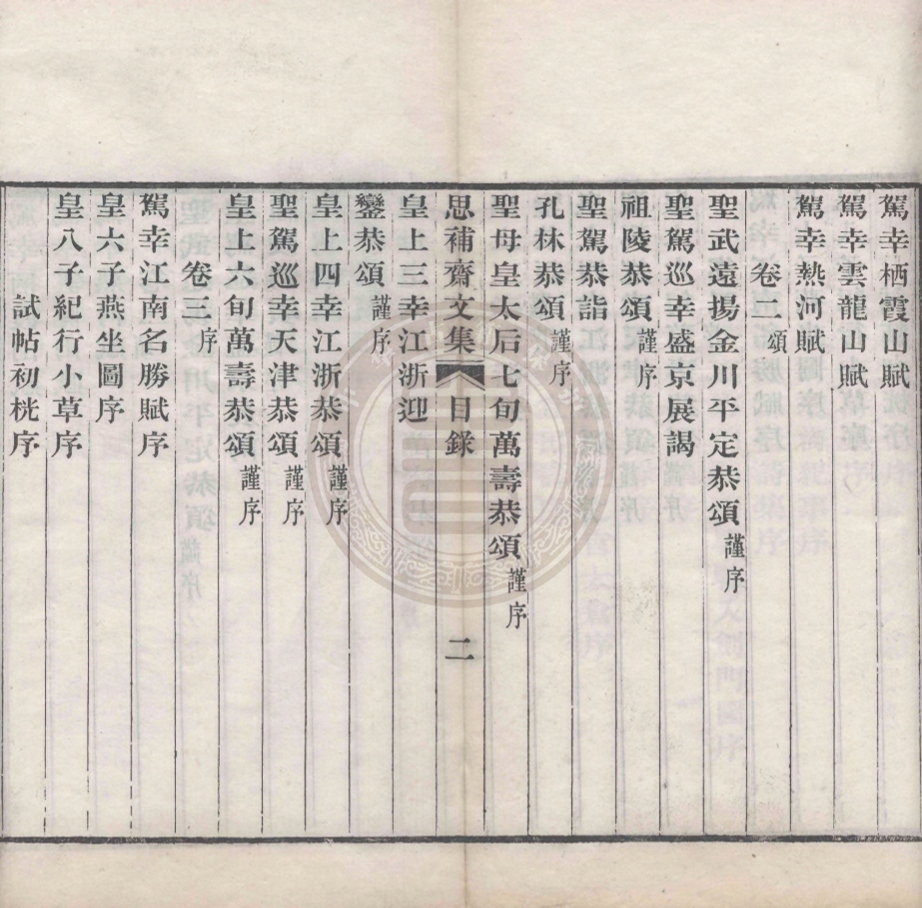 駕幸栖霞山賦
駕幸雲龍山賦
駕幸熱河賦
卷二頌
聖武遠揚金川平定恭頌謹序
聖駕巡幸盛京展謁
祖陵恭頌謹序
聖駕恭詣
孔林恭頌謹序
聖母皇太后七旬萬壽恭頌謹序
思補齋文集 目錄 二
皇上三幸江浙迎
鑾恭頌謹序
皇上四幸江浙恭頌謹序
聖駕巡幸天津恭頌謹序
皇上六旬萬壽恭頌謹序
卷三序
駕幸江南名勝賦序
皇六子燕坐圖序
皇八子紀行小草序
試帖初桄序